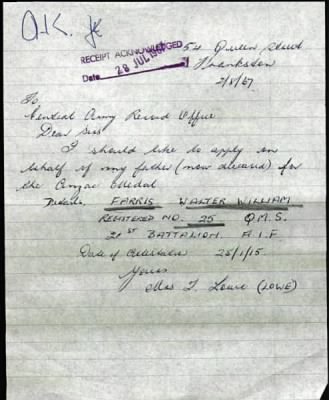 O.K.
RECEIPT ACKNOWLEDGED
Date 28 JUL 1967
54 Queen Street
Frankston
2/5/67
To
Central Army Record Office
Dear Sir
I should like to apply on
behalf of my father (now deceased) for
the Anzac Medal
Details. FARRIS WALTER WILLIAM
REGISTERED NO. 25 Q.M.S.
21ST BATTALION. A.I.F
Date of 25/1/15
Yours
Mrs Lowe (LOWE)